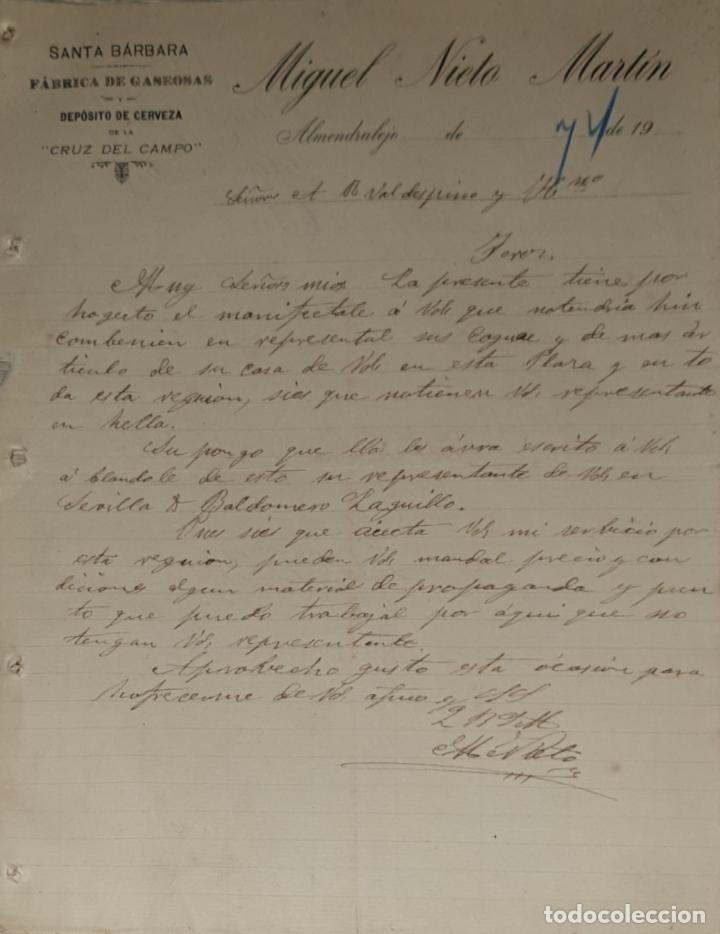 SANTA BÁRBARA
FÁBRICA DE GASEOSAS
Y
DEPÓSITO DE CERVEZA
DE LA
"CRUZ DEL CAMPO"
Miguel Nieto Martín
Almendralejo de de 19
Señores A R Valdespino y Hno
Jerez.
Muy Señores mios La presente tiene por
hogecto el manifectale á Vds que notendria hin
combenien en represental sus Cognac y de mas ar
ticulo de su casa de Vds en esta Plaza y en to
da esta reguion, sies que notienen Vds representante
en hella.
Su pongo que llá les ávra escrito á Vds
á blandole de esto su representante de Vds en
Sevilla D Baldomero Laguillo.
Pues sies que acecta Vds mi serbicio por
esta reguion, pueden Vds mandal precio y con
diciones algun material de propaganda y pun
to que puedo trabajal por áqui que no
tengan Vds representante.
Aprobecho gusto esta ócasión para
hofrecerme de Vds afmo y SS
Q B S M
M Nieto
todocoleccion